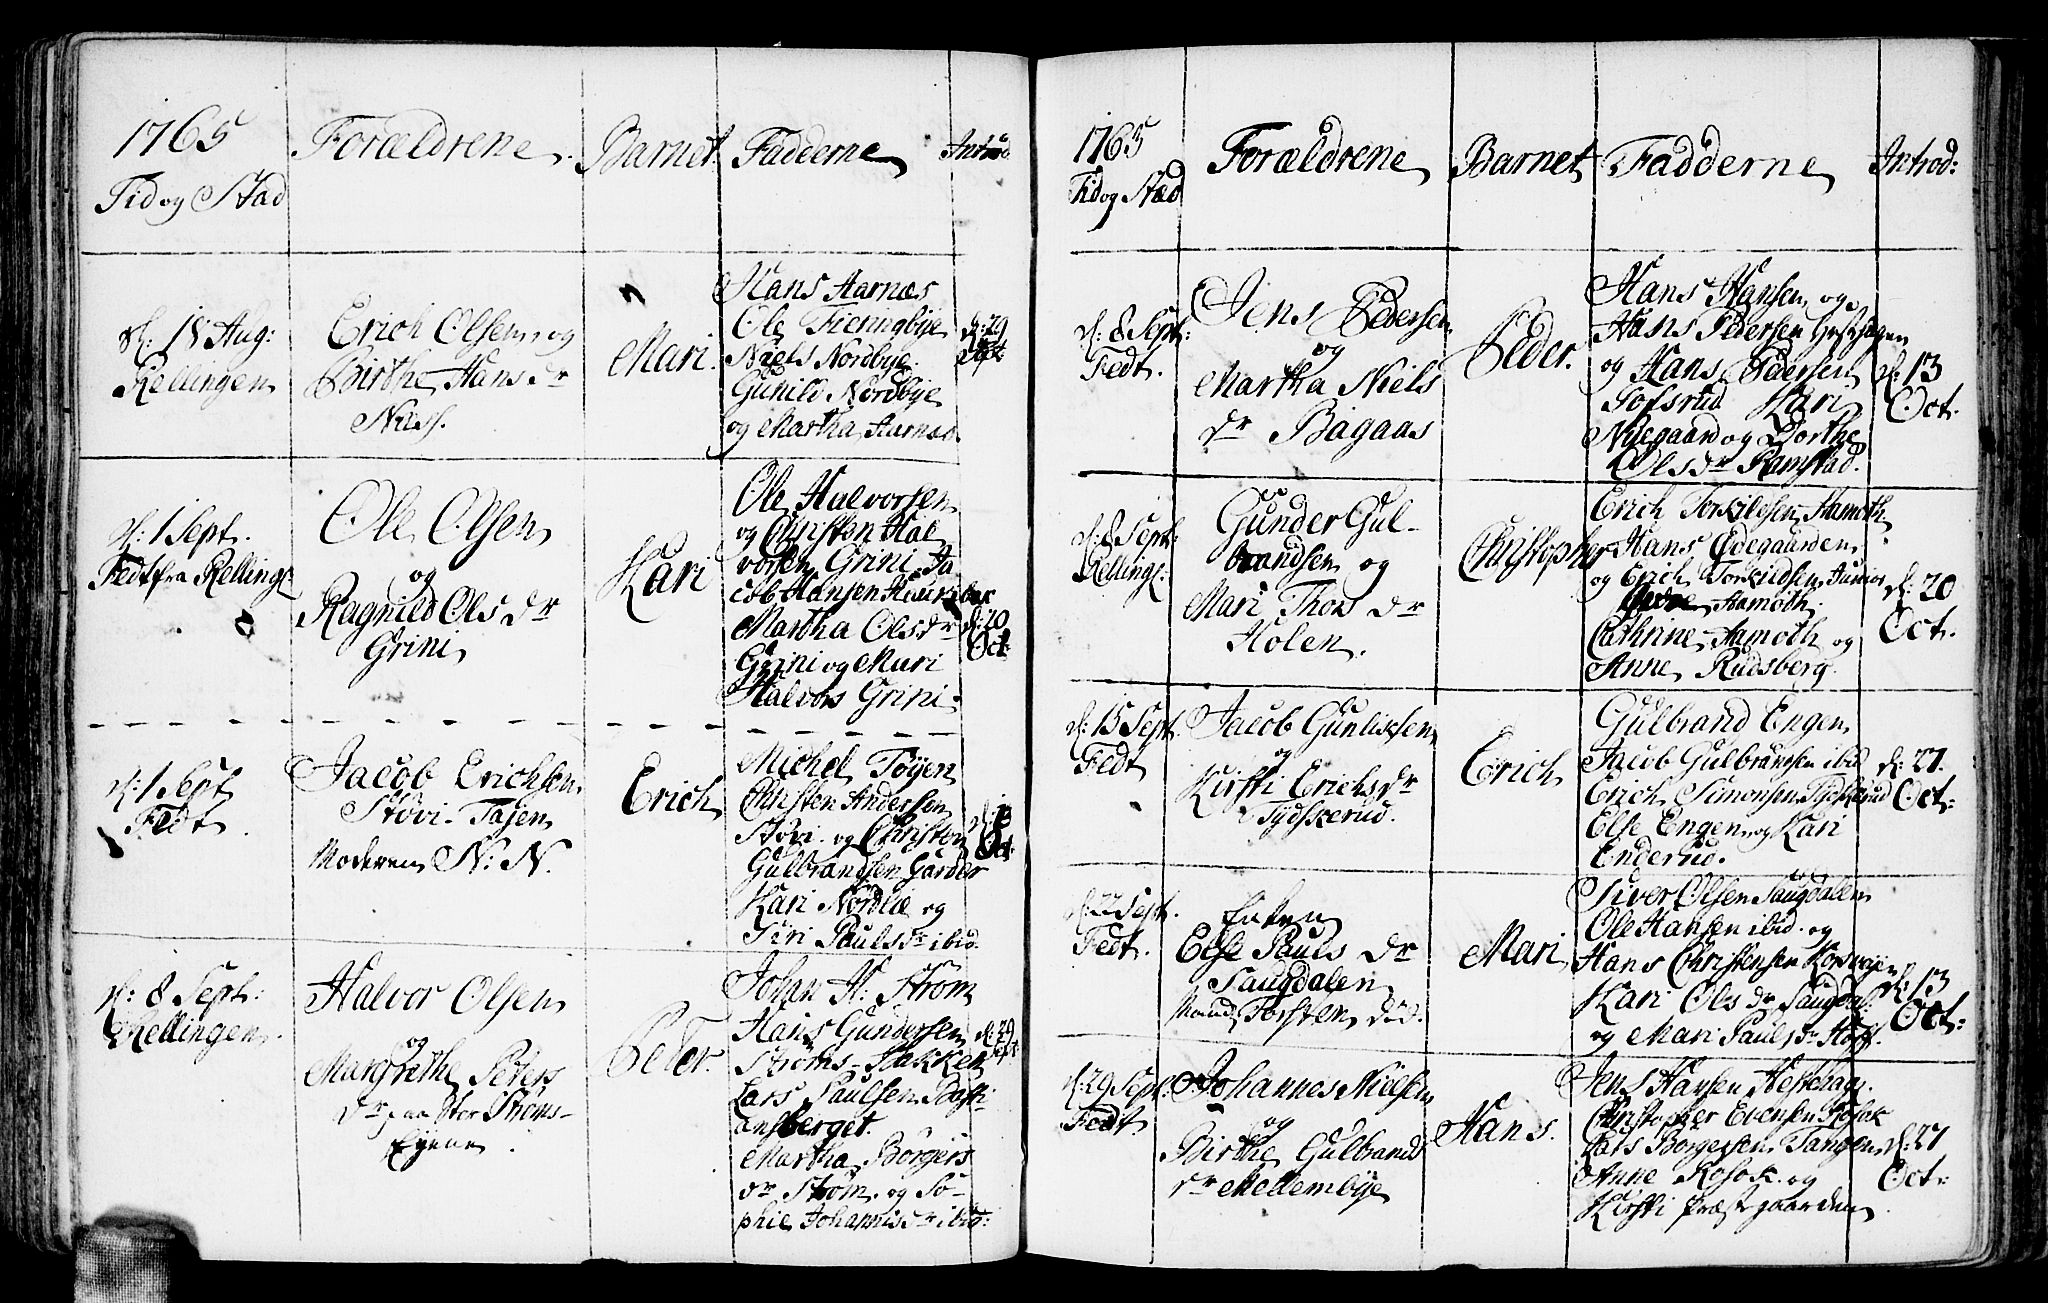 1765
Tid og Stad
Forældrene
Barnet
Fadderne
Introd
d: 18 Aug:
Rellingen
Erich Olsen og
Birthe Hans dr
Næss.
Mari.
Hans Aarnæs
Ole Fieringbye
Niels Nordbye
Gunild Nordbye
og Martha Aarnæs.
d: 29
Sept:
d: 1 Sept.
Fedt fra Rellingc
Ole Olsen
og
Ragnild Ols dr
Grini
Kari
Ole Halvorsen
og Christen Hal
vorsen Grini Ja
cob Hansen
Martha Ols dr
Grini og Mari
Halvors Grini.
d: 20
Oct:
d: 1 Sept
Fedt.
Jacob Erichsen
Stovi-Tajen
Moderen N: N.
Erich
Michel Tøyen
Christen Andersen
Stovi og Christen
Gulbrandsen Garder
Kari Nordlie og
Siri Pauls dr ibid.
d: 13
Oct
d: 8 Sept:
Rellingen.
Halvor Olsen
og
Margrethe Peders
dr paa Stor Strøms-
Eyene.
Peder.
Johan H: Strøm
Hans Gundersen
Strøms-Bakken
Lars Paulsen Basti-
ansberget.
Martha Børgers
dr Strøm og So-
phie Johannis dr ibid:
d: 29
Sept
1765
Tid og Stæd
Forældrene
Barnet
Fadderne
Introd:
d: 8 Sept:
Fedt.
Jens Pedersen
og
Martha Niels
dr Bagaas
Peder.
Hans Hansen og
Hans Pedersen
og Hans Pedersen
Tofsrud Kari
Nyegaard og Dorthe
Ols dr Ramstad.
d: 13
Oct.
d: 8 Sept:
Rellingc.
Gunder Gul-
brandsen og
Mari Thors dr
Holen.
Christopher
Erich Torkildsen Aamoth
Hans Ødegaarden
og Erich Torkildsen Junior
Aamoth
Cathrine Aamoth og
Anne Rudsberg.
d: 20
Oct.
d: 15 Sept.
Fedt
Jacob Gunliksen
og
Kirsti Erichs dr
Tydskerud.
Erich
Gulbrand Engen
Jacob Gulbrandsen ibid
Erich Simonsen Tydskerud
Else Engen og Kari
Enderud.
d: 27.
Oct:
d: 22 Sept.
Fedt.
Enken
Else Pauls dr
Saugdalen
Mand Torsten død.
Mari
Siver Olsen Saugdalen
Ole Hansen ibid. og
Hans Christensen Korsvejen
Kari Ols dr Saugdal:
og Mari Pauls dr Hoff.
d: 13
Oct:
d: 29 Sept:
Fedt
Johannes Nielsen
og
Birthe Gulbrands
dr Mellembye
Hans.
Jens Hansen Hestehag.
Christopher Evensen Kosok
Lars Borgersen Tangen
Anne Kosok og
Kirsti Præstgaarden
d: 27
Oct: